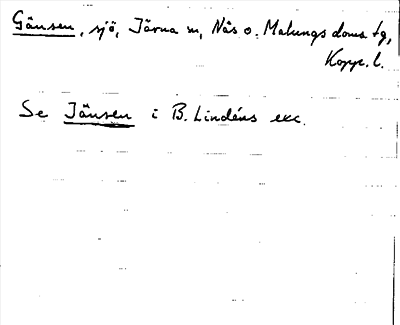 Gänsen, sjö, Järna sn, Nås o. Malungs doms tg,
Kopp. l.
Se Jänsen i B. Lindéns exc.